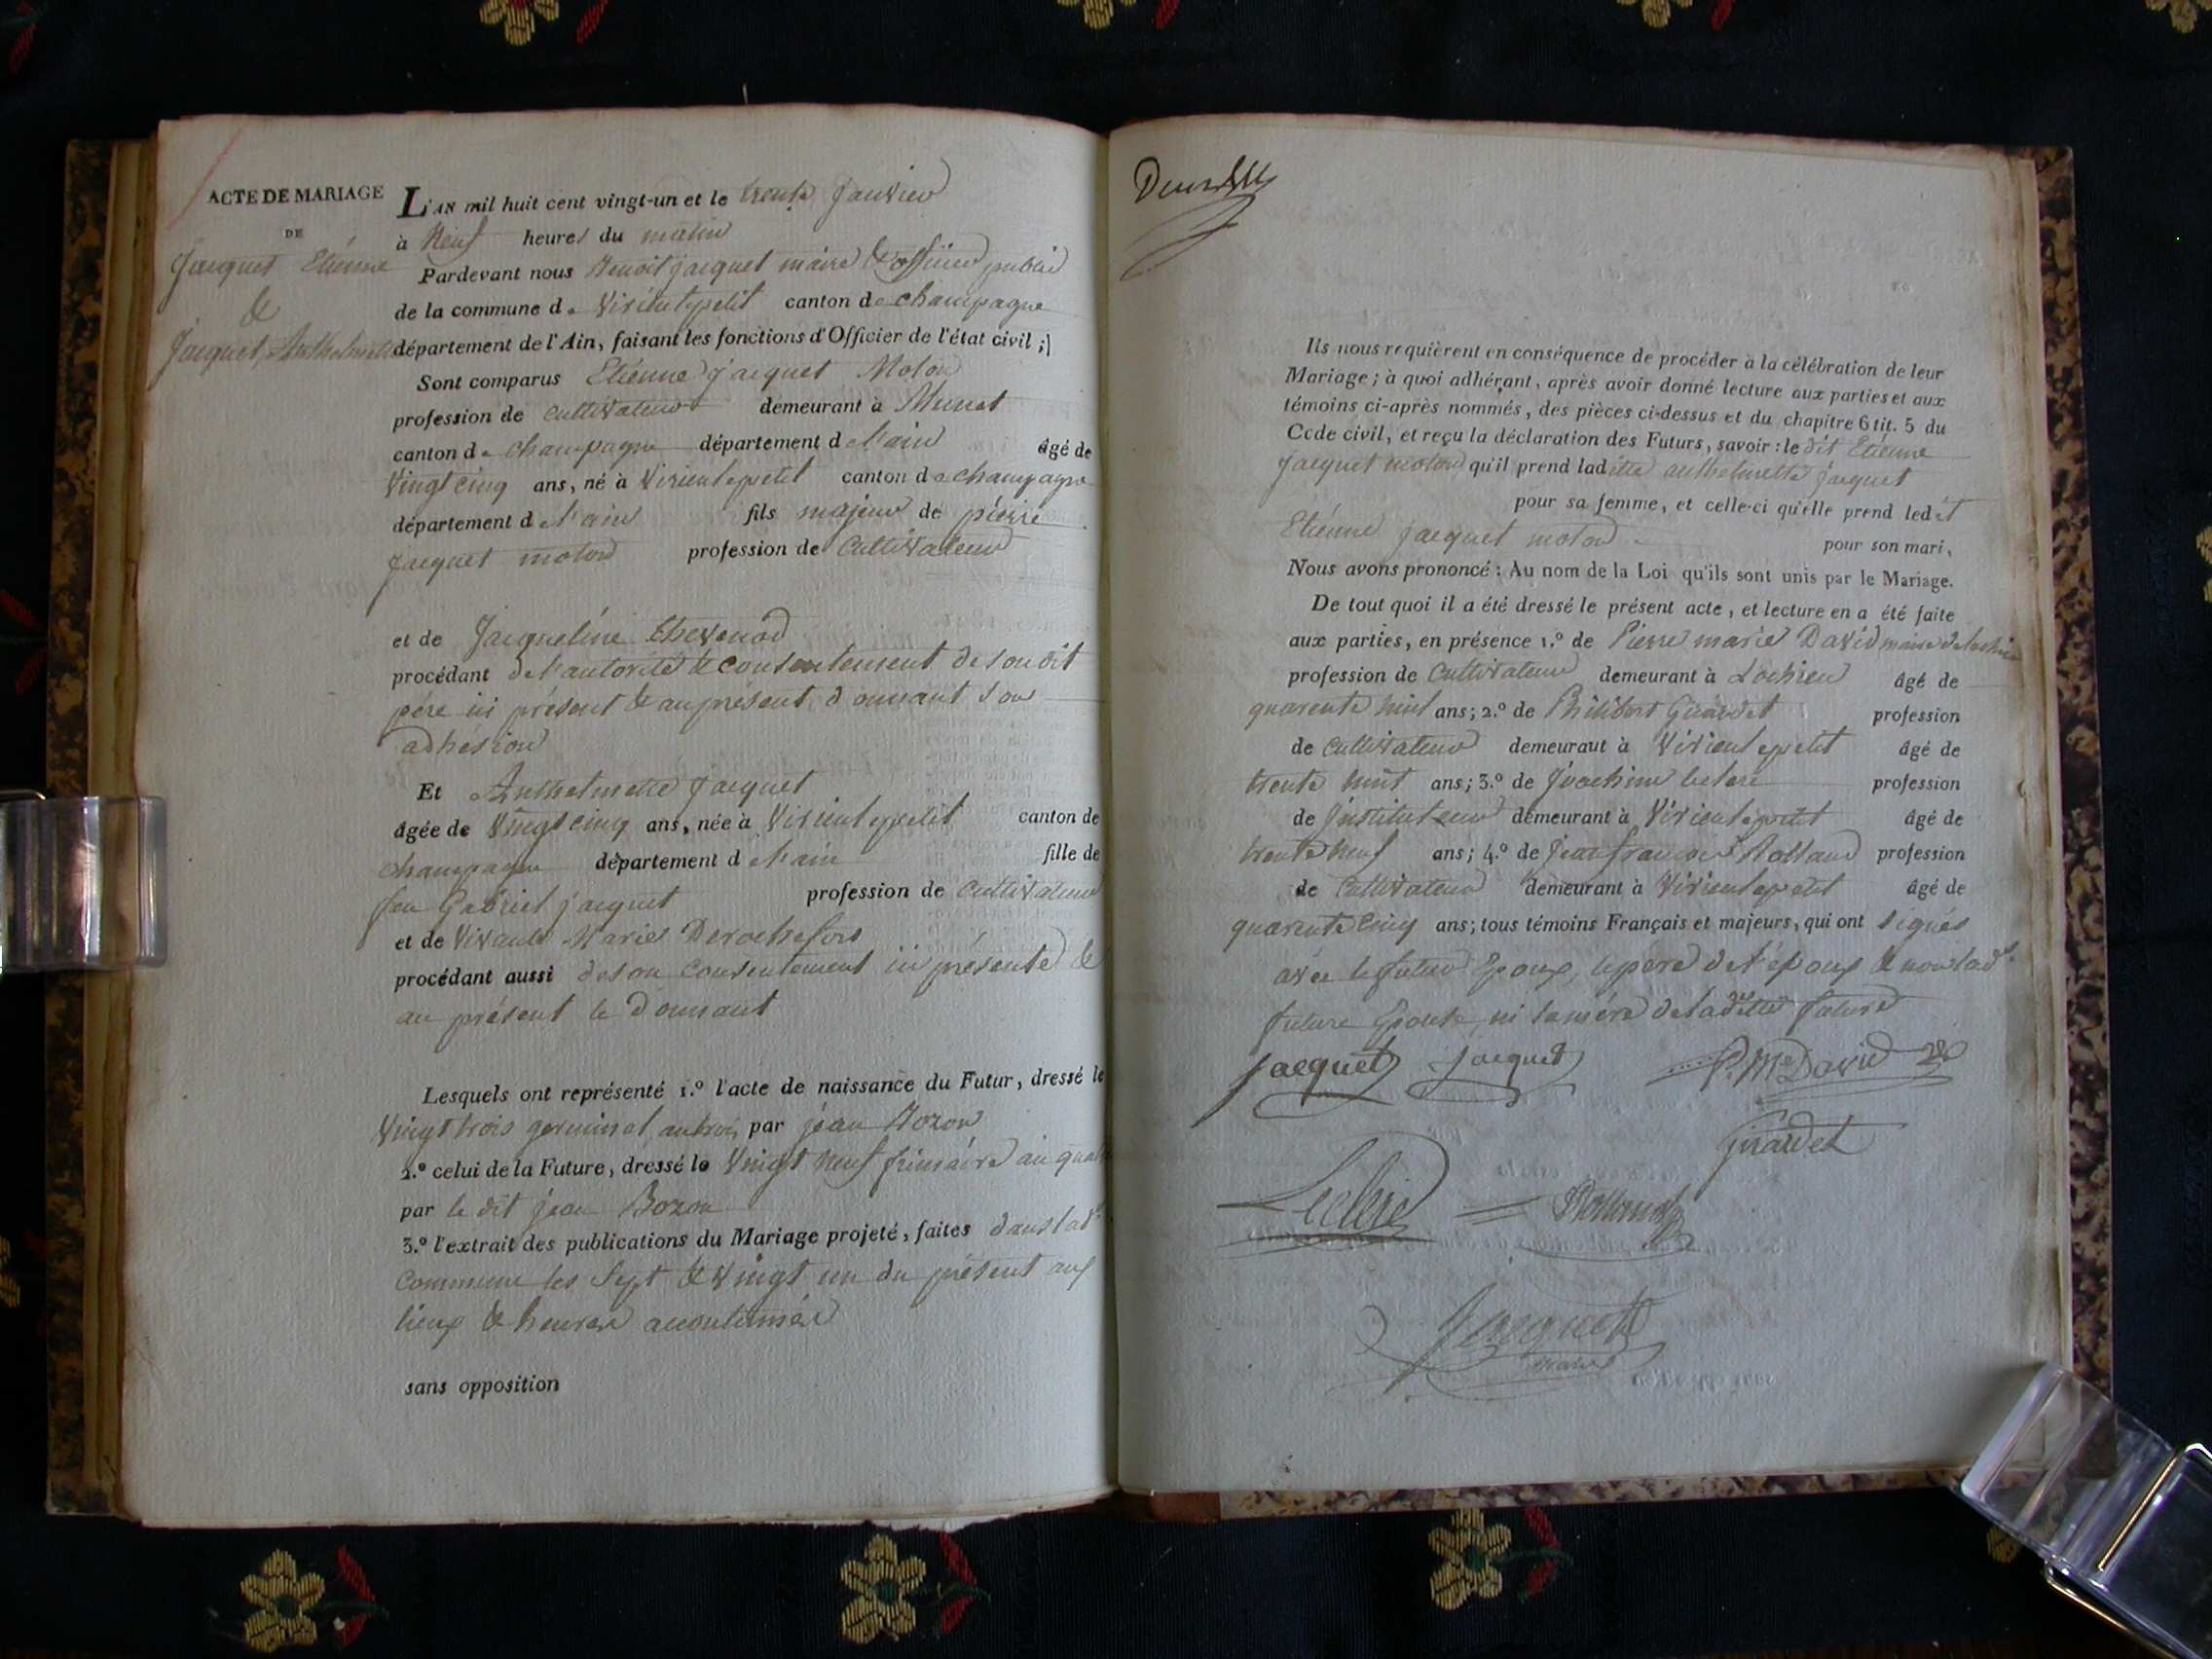 ACTE DE MARIAGE
DE
Jacquet Etiénne
&
Jacquet, Anthelmette
L'AN mil huit cent vingt-un et le trente Janvier
à Neuf heures du matin
Pardevant nous Benoit jacquet maire & officier public
de la commune de Virieu le petit canton de champagne
département de l'Ain, faisant les fonctions d'Officier de l'état civil ;
Sont comparus Etiénne jacquet Moton
profession de cultivateur demeurant à Munet
canton de champagne département de l'ain âgé de
Vingt cinq ans, né à Virieu le petit canton de champagne
département de l'ain fils majeur de piérre
jacquet moton profession de Cultivateur
et de Jacqueline thevenod
procédant de l'autorité & consentement de son dit
pére ici présent & au présent, donnant son
adhésion
Et Anthelmette jacquet
âgée de Vingt cinq ans, née à Virieu le petit canton de
champagne département de l'ain fille de
feu Gabriel jacquet profession de Cultivateur
et de Vivante Marie Derochefort
procédant aussi de son Consentement ici présente &
au présent le donnant
Lesquels ont représenté 1.º l'acte de naissance du Futur, dressé le
Vingt trois germinal, an trois, par jéan Bozon
2.º celui de la Future, dressé le Vingt neuf frimaire an quatre
par le dit jean Bozon
3.º l'extrait des publications du Mariage projeté, faites dans lad.e
Commune les Sept & Vingt un du présent aux
lieux & heures accoutumés
sans opposition
Ils nous requièrent en conséquence de procéder à la célébration de leur
Mariage ; à quoi adhérant, après avoir donné lecture aux parties et aux
témoins ci-après nommés, des pièces ci-dessus et du chapitre 6 tit. 5 du
Code civil, et reçu la déclaration des Futurs, savoir : le dit Etiénne
Jacquet moton qu'il prend ladite anthelmette jacquet
pour sa femme, et celle-ci qu'elle prend ledit
Etiénne jacquet moton pour son mari,
Nous avons prononcé : Au nom de la Loi qu'ils sont unis par le Mariage.
De tout quoi il a été dressé le présent acte, et lecture en a été faite
aux parties, en présence 1.º de Pierre marie David maire de lochieu
profession de Cultivateur demeurant à Lochieu âgé de
quarente huit ans ; 2.º de Philibert Girardet profession
de cultivateur demeurant à Virieu le petit âgé de
trente huit ans ; 3.º de Joachim leclerc profession
de Instituteur demeurant à Virieu le petit âgé de
trente neuf ans ; 4.º de Jean françois Rolland profession
de Cultivateur demeurant à Virieu le petit âgé de
quarente cinq ans ; tous témoins Français et majeurs, qui ont signés
avec le futur Epoux, le pere de l'époux & non lad.e
future Epouse, ni la mére de la ditte future
Jacquet Jacquet P. Me David
Girardet
Leclerc Rolland
Jacquet
maire